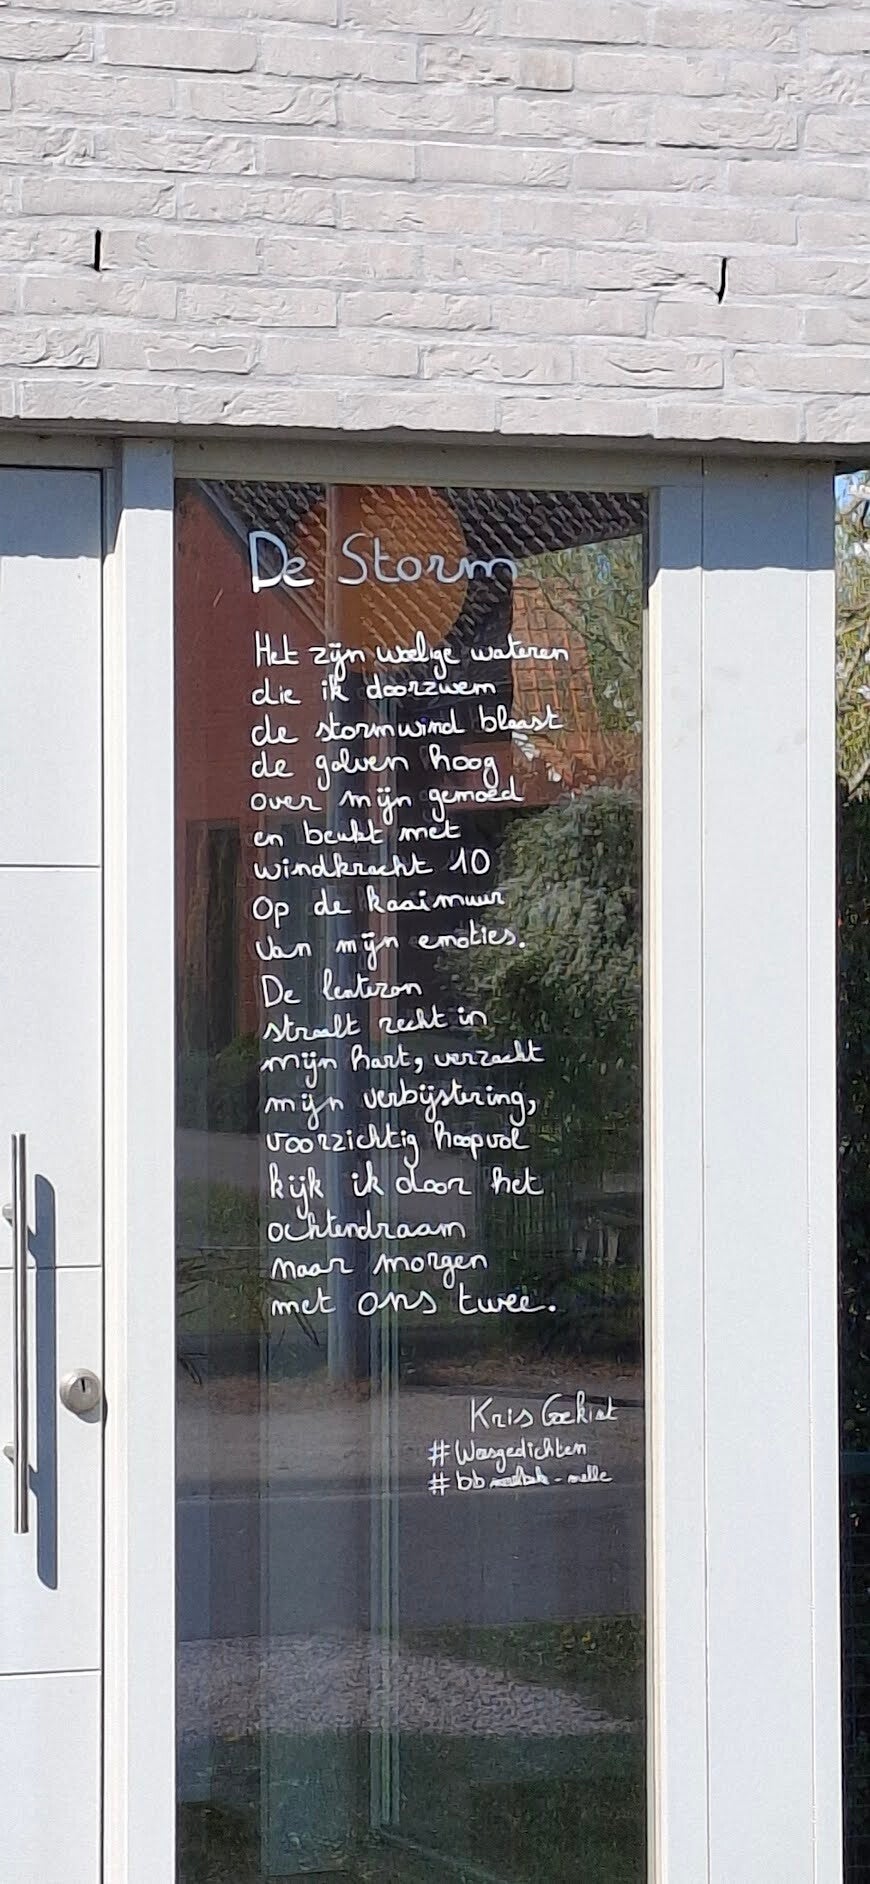 De Storm
Het zijn woelige wateren
die ik doorzwem
de stormwind blaast
de golven hoog
over mijn gemoed
en beukt met
windkracht 10
Op de kaaimuur
van mijn emoties.
De lentezon
straalt recht in
mijn hart, verzacht
mijn verbijstering,
voorzichtig hoopvol
kijk ik door het
ochtendraam
naar morgen
met ons twee.
Kris
#
# bb - melle